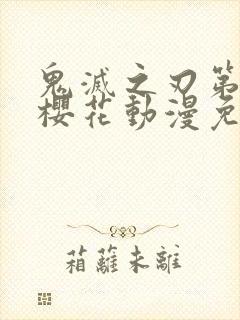 鬼滅之刃第
櫻花動漫免
箱蘺未離